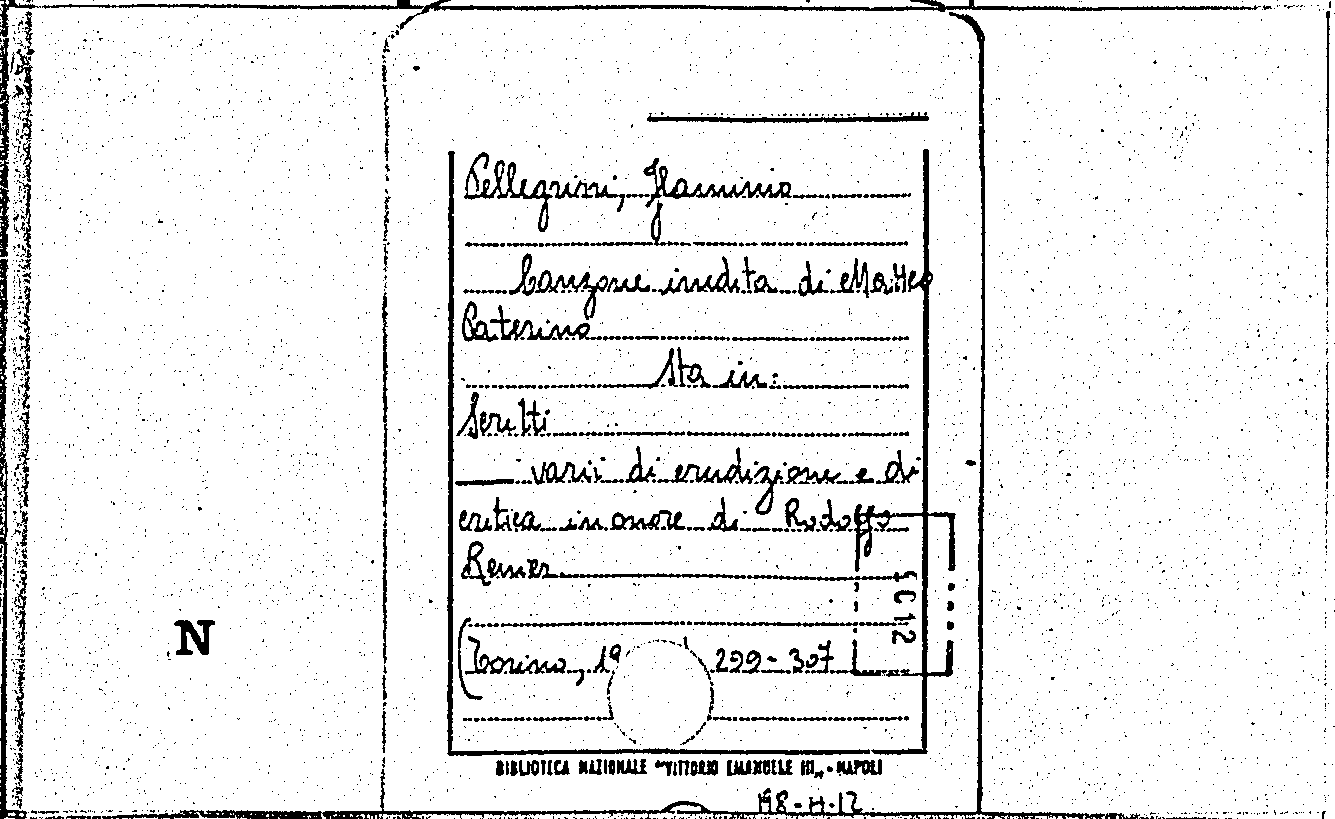 Pellegrini, Flaminio
Canzone inedita di Matteo
Caterino
Sta in:
Scritti
varii di erudizione e di
critica in onore di Rodolfo
Renier
(Torino, 19 299-307
N
BIBLIOTECA NAZIONALE "VITTORIO EMANUELE III" - NAPOLI